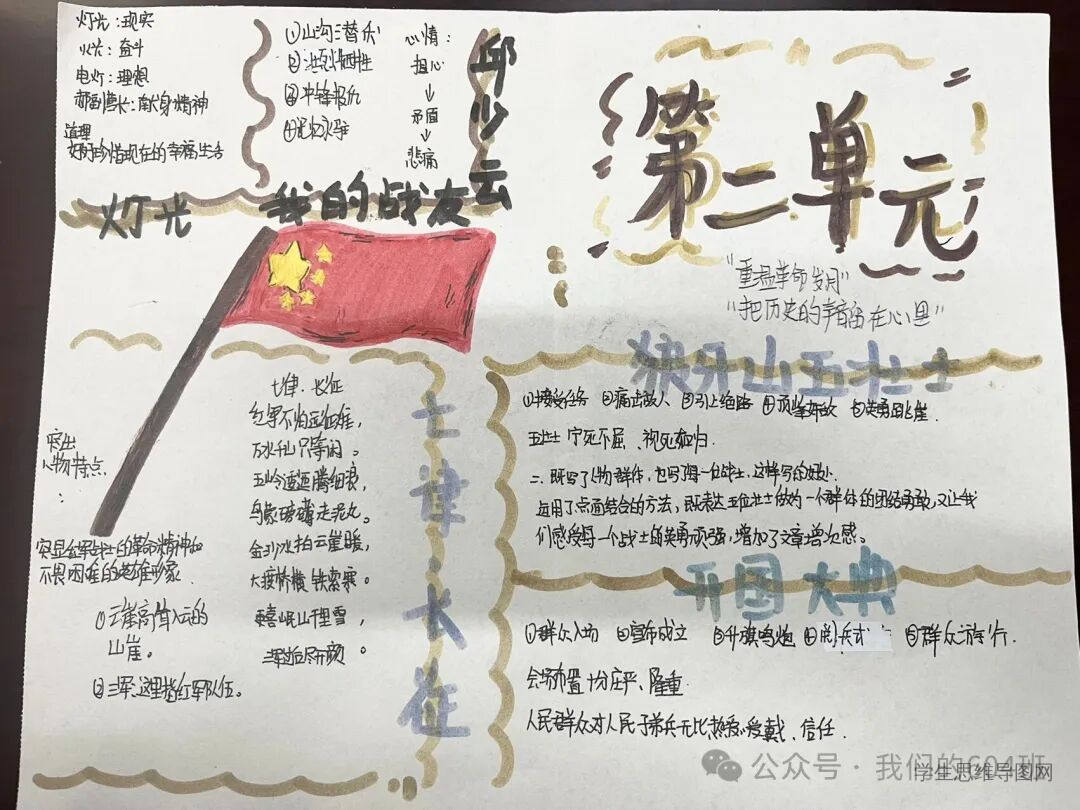 灯光：现实
火光：奋斗
电灯：理想
郝副营长：献身精神
道理
好好珍惜现在的幸福生活
灯光
①山沟潜伏
②壮烈牺牲
③冲锋报仇
④
心情：
担心
↓
矛盾
↓
悲痛
我的战友
邱少云
第二单元
"重温革命岁月"
"把历史的声音留在心里"
狼牙山五壮士
①接受任务 ②痛击敌人 ③引上绝路 ④顶峰歼敌 ⑤英勇跳崖
五壮士宁死不屈、视死如归.
二、既写了人物群体，也写了每一位战士，这样写的好处：
运用了点面结合的方法，既表达五位壮士做为一个群体的团结勇敢，又让我
们感受每一个战士的英勇顽强，增加了文章增次感。
开国大典
①群众入场 ②宣布成立 ③升旗鸣炮 ④阅兵式 ⑤群众游行.
会场布置十分庄严、隆重
人民群众对人民子弟兵无比热爱、爱戴、信任
七律·长征
七律·长征
红军不怕远征难，
万水千山只等闲。
五岭逶迤腾细浪，
乌蒙磅礴走泥丸。
金沙水拍云崖暖，
大渡桥横铁索寒。
更喜岷山千里雪，
三军过后尽开颜。
突出
人物特点
：
突显红军战士的革命精神和
不畏困难的英雄形象
①云崖高耸入云的
山崖。
②三军：这里指红军队伍。
公众号·我们的604班
学生思维导图网